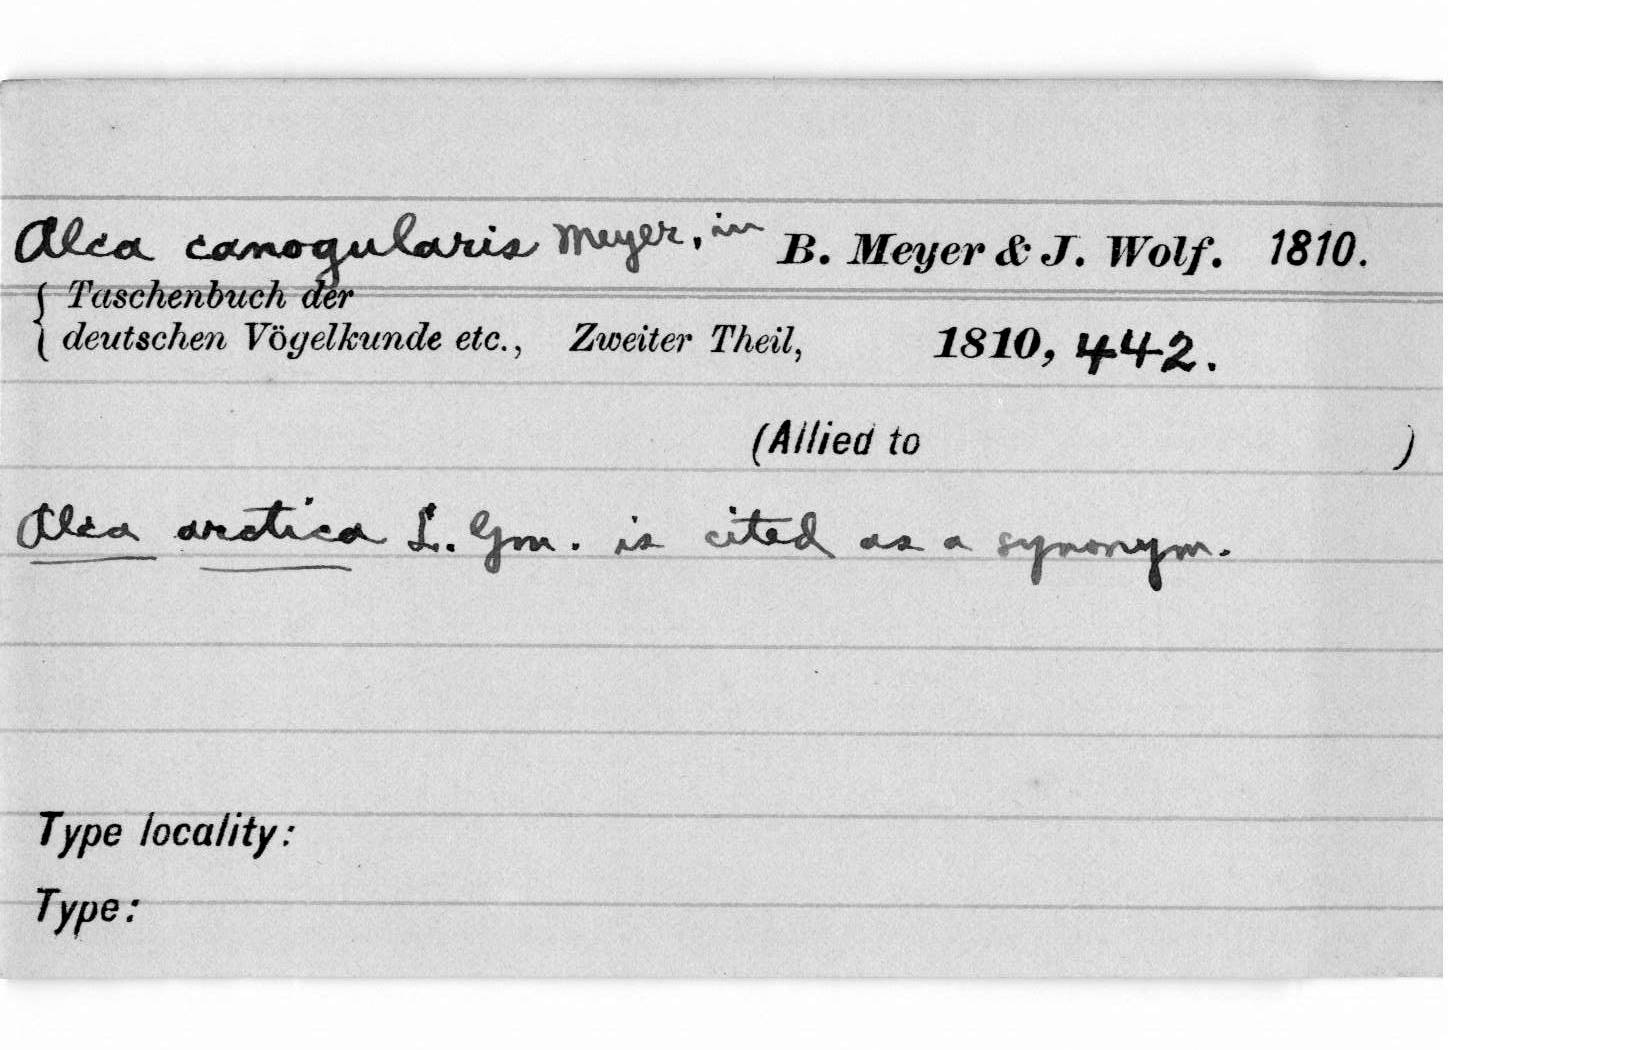 Alca canogularis Meyer, in B. Meyer & J. Wolf. 1810.
{ Taschenbuch der
deutschen Vögelkunde etc., Zweiter Theil, 1810, 442.
(Allied to )
Alca arctica L. Gm. is cited as a synonym.
Type locality:
Type: